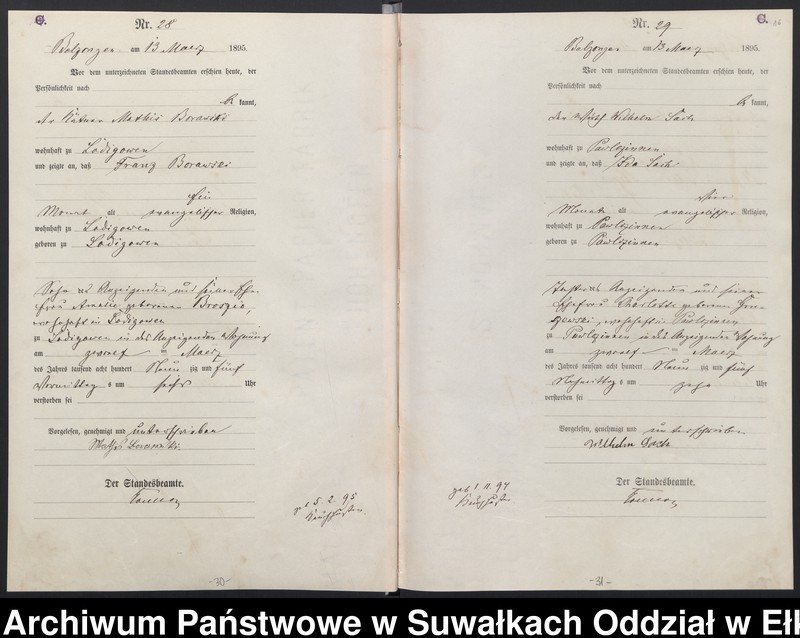 C.
Nr. 28
am 13 Maerz 1895.
Vor dem unterzeichneten Standesbeamten erschien heute, der
Persönlichkeit nach
kannt,
der Käthner Mathis Borawski
wohnhaft zu Lodigowen
und zeigte an, daß Franz Borawski
ein
Monat alt evangelischer Religion,
wohnhaft zu Lodigowen
geboren zu Lodigowen
Sohn des Anzeigenden und seiner Ehe
frau Amalie geborenen Broszio,
wohnhaft in Lodigowen
zu Lodigowen in des Anzeigenden Wohnung
am zwoelf ten Maerz
des Jahres tausend acht hundert Neun zig und fünf
Vormittag s um sechs Uhr
verstorben sei
Vorgelesen, genehmigt und unterschrieben
Mathis Borawski
Der Standesbeamte.
geb 5. 2. 95
-30-
C.
Nr. 29
am 13 Maerz 1895.
Vor dem unterzeichneten Standesbeamten erschien heute, der
Persönlichkeit nach
kannt,
der Wilhelm
wohnhaft zu Pawlozinnen
und zeigte an, daß Ida
vier
Monate alt evangelischer Religion,
wohnhaft zu Pawlozinnen
geboren zu Pawlozinnen
Tochter des Anzeigenden und seiner
Ehefrau Charlotte geborenen
wohnhaft in Pawlozinnen
zu Pawlozinnen in des Anzeigenden Wohnung
am zwoelf ten Maerz
des Jahres tausend acht hundert Neun zig und fünf
Nachmittag s um zehn Uhr
verstorben sei
Vorgelesen, genehmigt und unterschrieben
Wilhelm
Der Standesbeamte.
geb 1. 11. 94
-31-
Archiwum Państwowe w Suwałkach Oddział w Eł